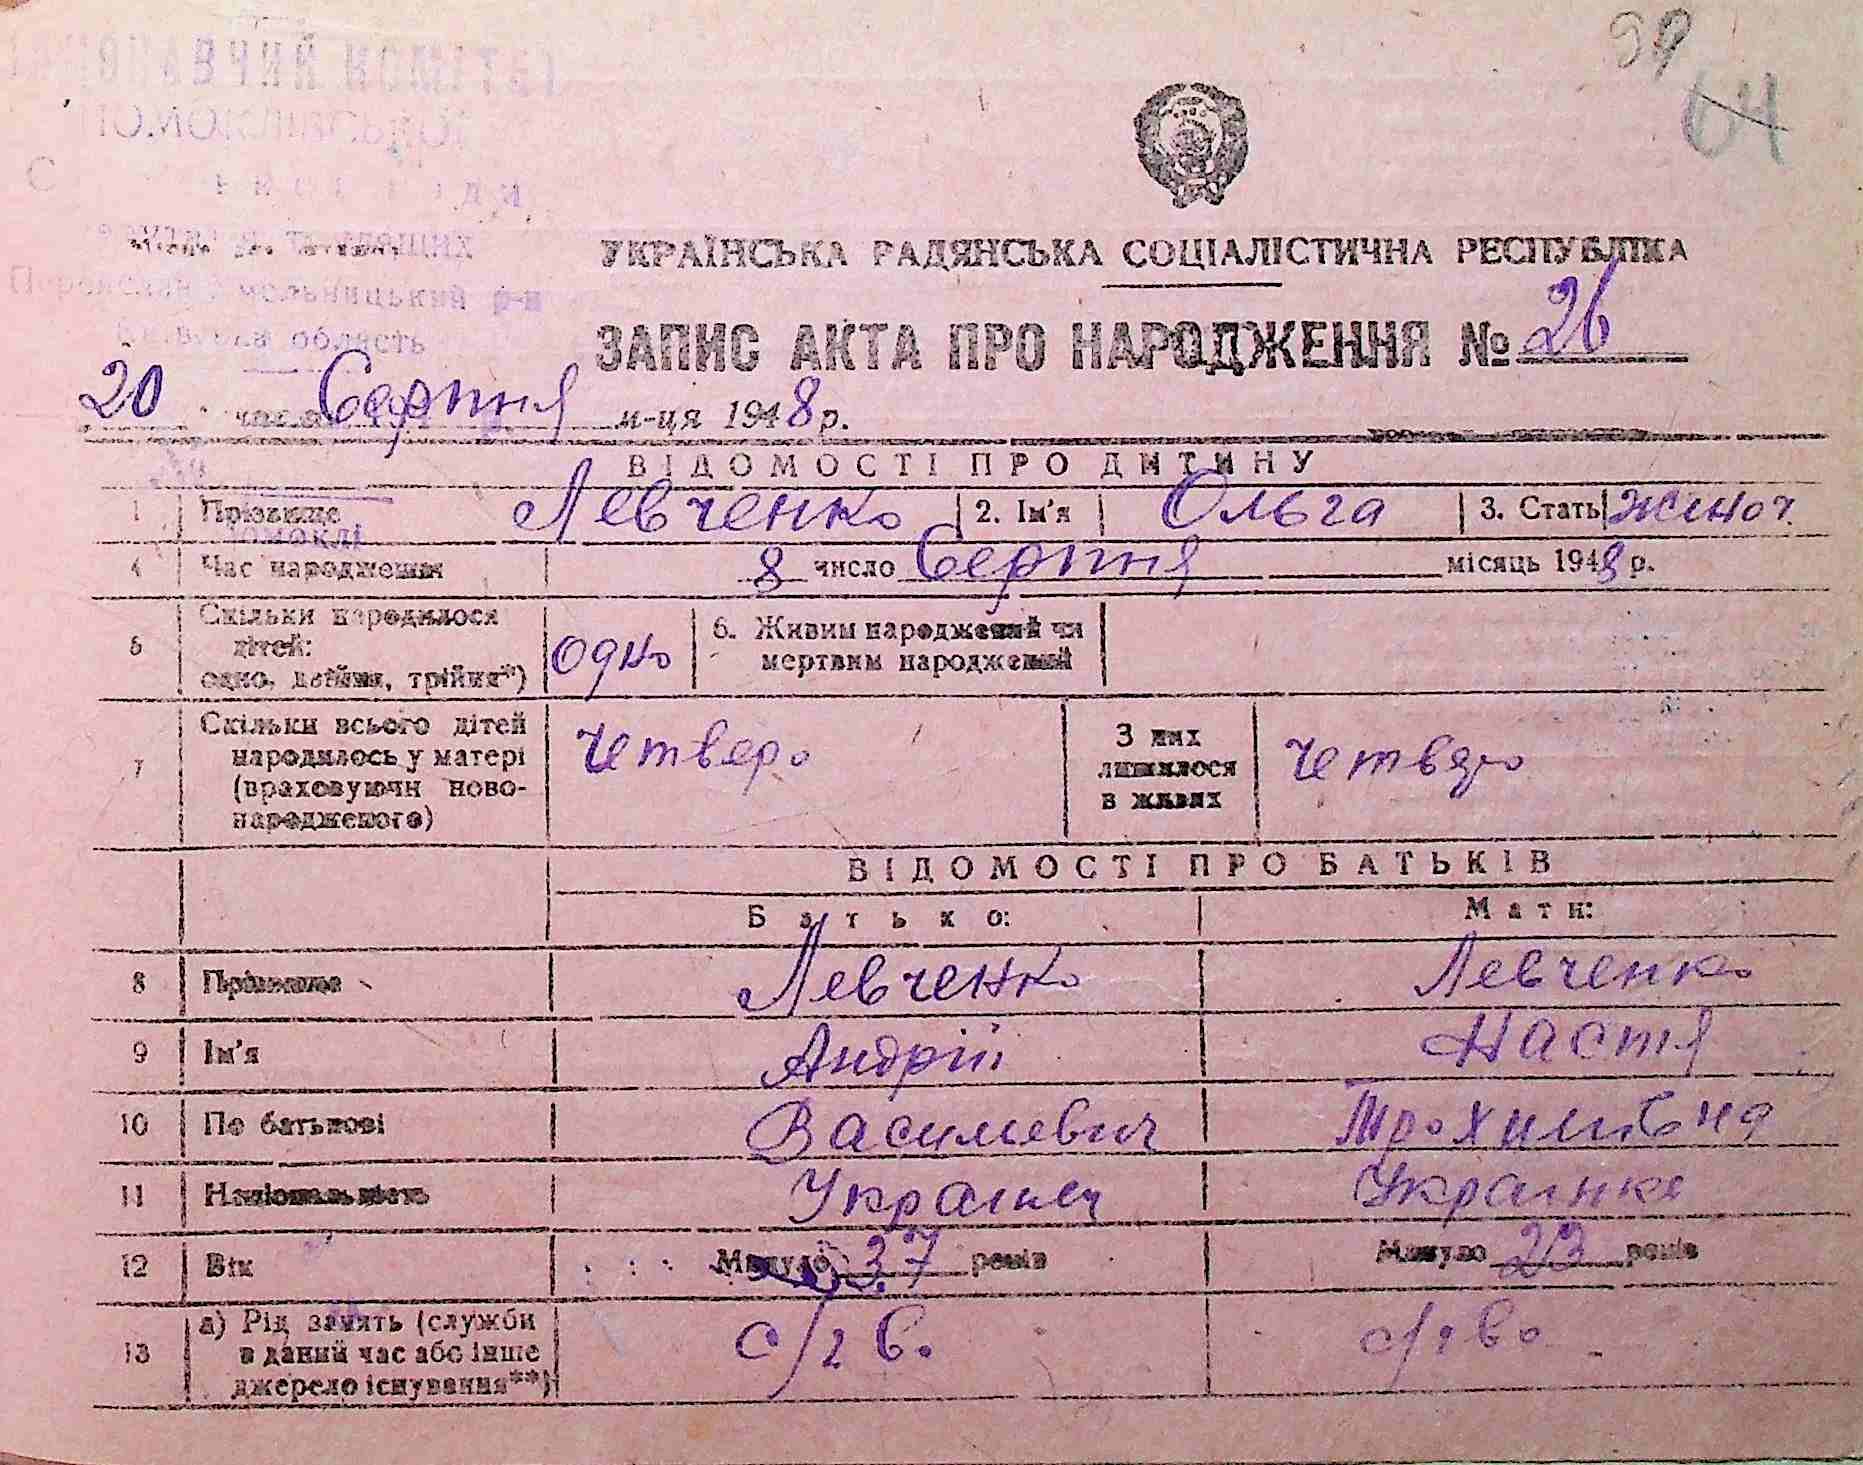 99
64
УКРАЇНСЬКА РАДЯНСЬКА СОЦІАЛІСТИЧНА РЕСПУБЛІКА
ЗАПИС АКТА ПРО НАРОДЖЕННЯ № 26
20 Серпня м-ця 1948 р.
ВІДОМОСТІ ПРО ДИТИНУ
1 Прізвище Левченко 2. Ім'я Ольга 3. Стать жіноч.
4 Час народження 8 число Серпня місяць 1948 р.
5 Скільки народилося дітей: одно, двійня, трійня*) одно 6. Живим народжений чи мертвим народжений
7 Скільки всього дітей народилось у матері (враховуючи новонародженого) Четверо З них лишилося в живих Четверо
ВІДОМОСТІ ПРО БАТЬКІВ
Батько: Мати:
8 Прізвище Левченко Левченко
9 Ім'я Андрій Настя
10 По батькові Василевич Трохимівна
11 Національність Українец Українка
12 Вік Минуло 37 років Минуло 23 років
13 а) Рід занять (служби в даний час або інше джерело існування**) с/г в. с/г во